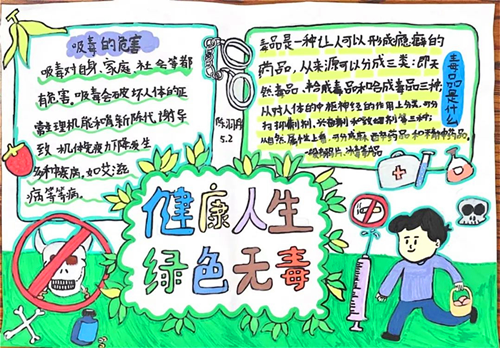 吸毒的危害
吸毒对自身、家庭、社会等都
有危害。吸毒会破坏人体的正
常生理机能和新陈代谢导
致机体免疫力下降发生
多种疾病,如艾滋
病等等病。
5.2
毒品是什么
毒品是一种让人可以形成瘾癖的
药品,从来源可以分成三类:即天
然毒品、
合成毒品和
合成毒品三种;
从对人体的中枢神经的作用上分,可分
抑制剂、
兴奋剂和致幻剂等三种;
从自然属性上看,可分为麻醉药品和
药品。
健康人生
绿色无毒